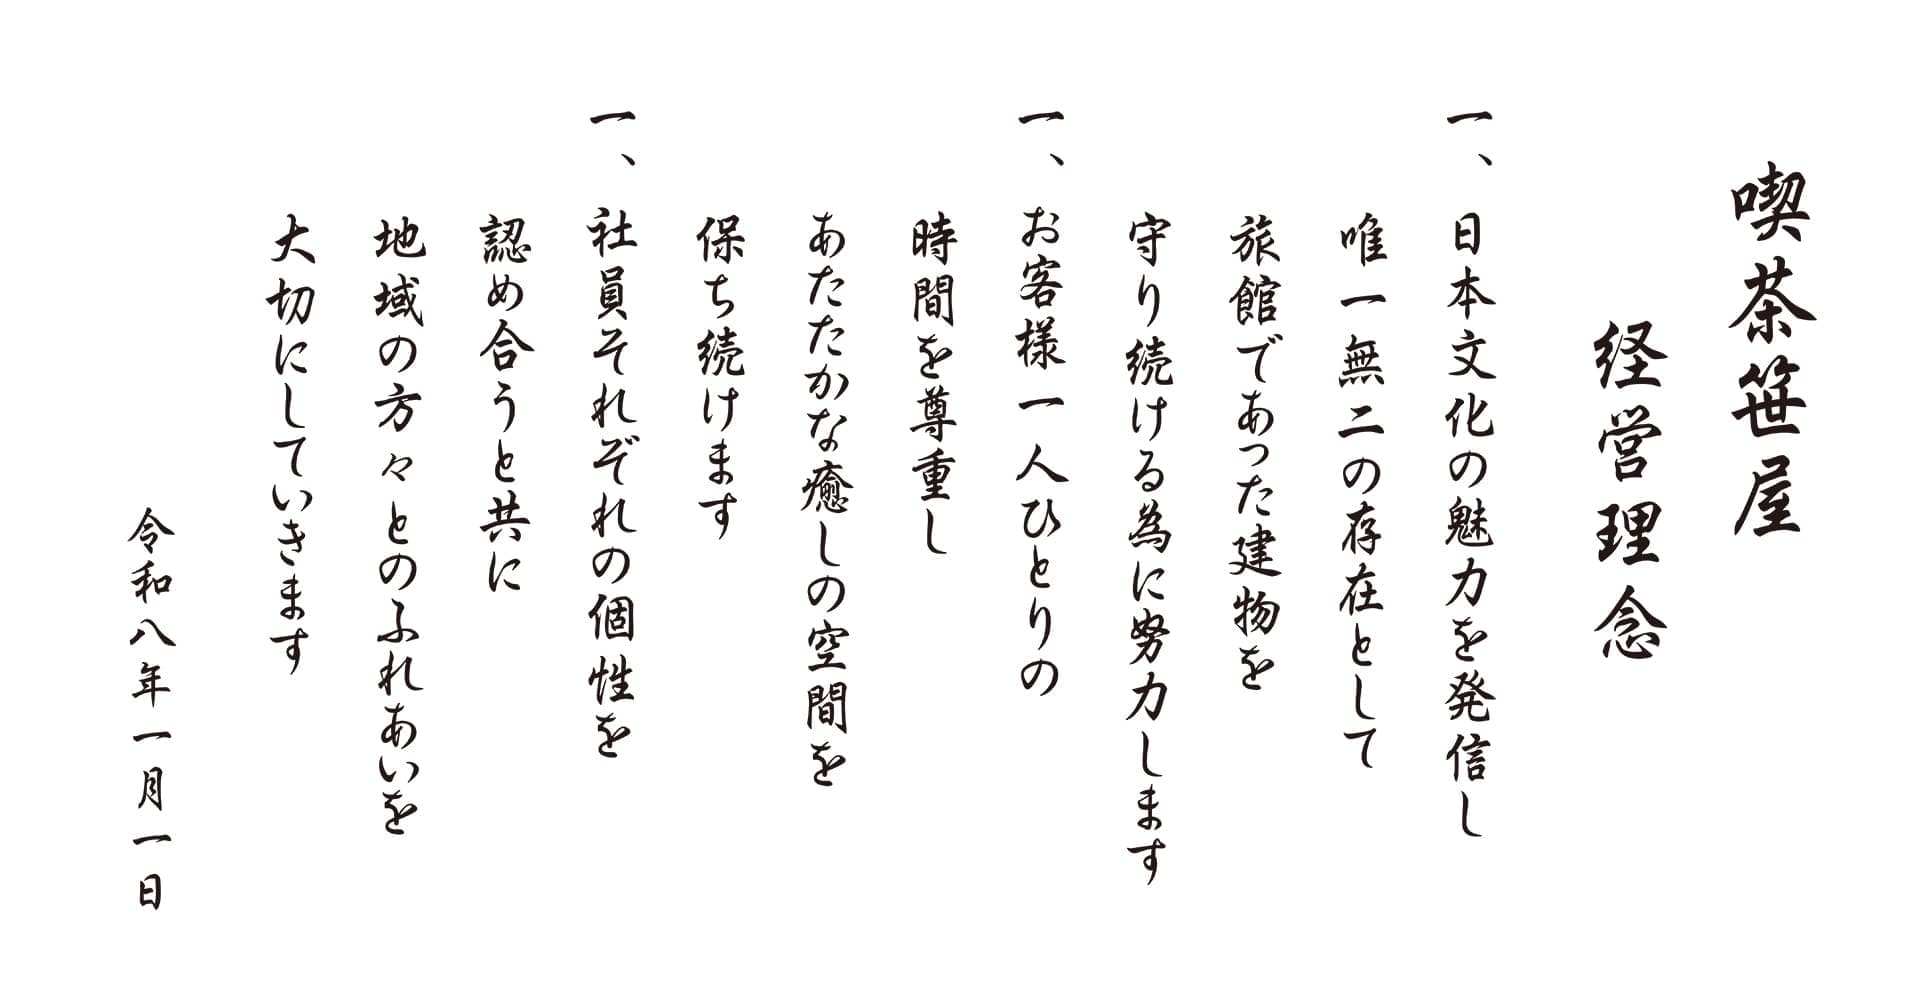 喫茶笹屋
経営理念
一、日本文化の魅力を発信し
唯一無二の存在として
旅館であった建物を
守り続ける為に努力します
一、お客様一人ひとりの
時間を尊重し
あたたかな癒しの空間を
保ち続けます
一、社員それぞれの個性を
認め合うと共に
地域の方々とのふれあいを
大切にしていきます
令和八年一月一日